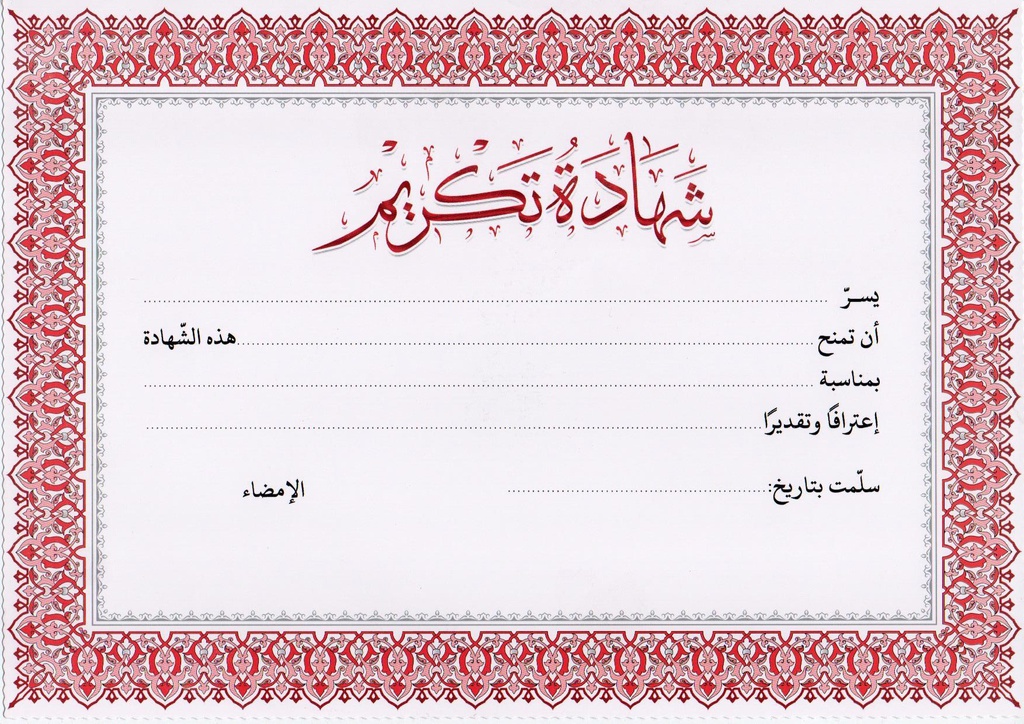 شَهَادَةُ تَكْرِيمْ
يسـرّ ........................................
أن تمنح ........................................ هذه الشّهادة
بمناسبة ........................................
إعترافًا وتقديرًا ........................................
سلّمت بتاريخ: ........................................ الإمضاء